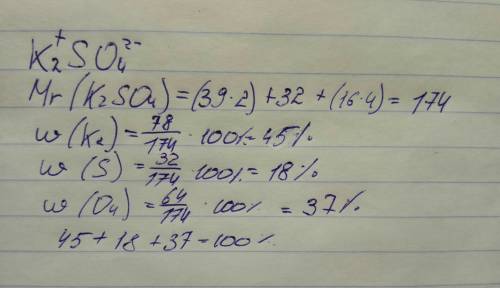 K₂⁺SO₄²⁻
Mr (K₂SO₄) = (39·2) + 32 + (16·4) = 174
w (K₂) = 78/174 · 100% = 45%
w (S) = 32/174 · 100% = 18%
w (O₄) = 64/174 · 100% = 37%
45 + 18 + 37 = 100%